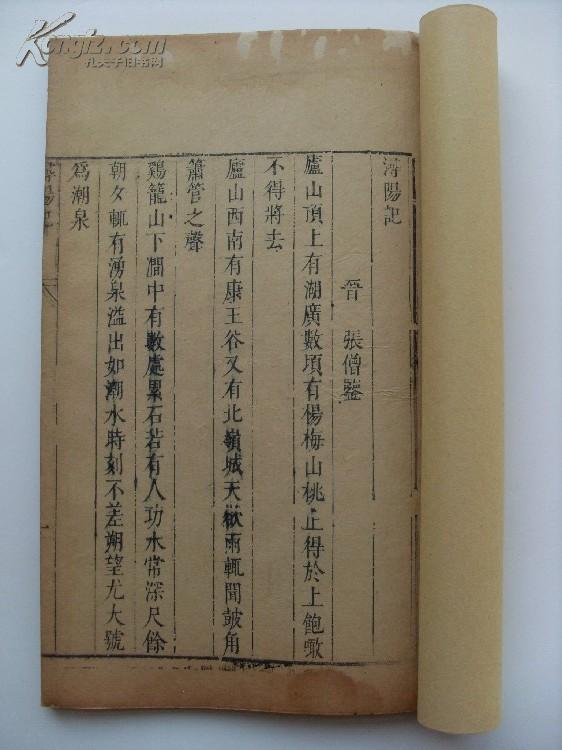 潯陽記
晉 張僧鑒
廬山頂上有湖廣數頃有楊梅山桃止得於上飽噉
不得將去
廬山西南有康王谷又有北嶺城天欲雨輒聞鼓角
簫管之聲
鷄籠山下澗中有數處累石若有人功水常深尺餘
朝夕輒有湧泉溢出如潮水時刻不差朔望尤大號
爲潮泉
潯陽記
一
Kongfz.com
孔夫子旧书网